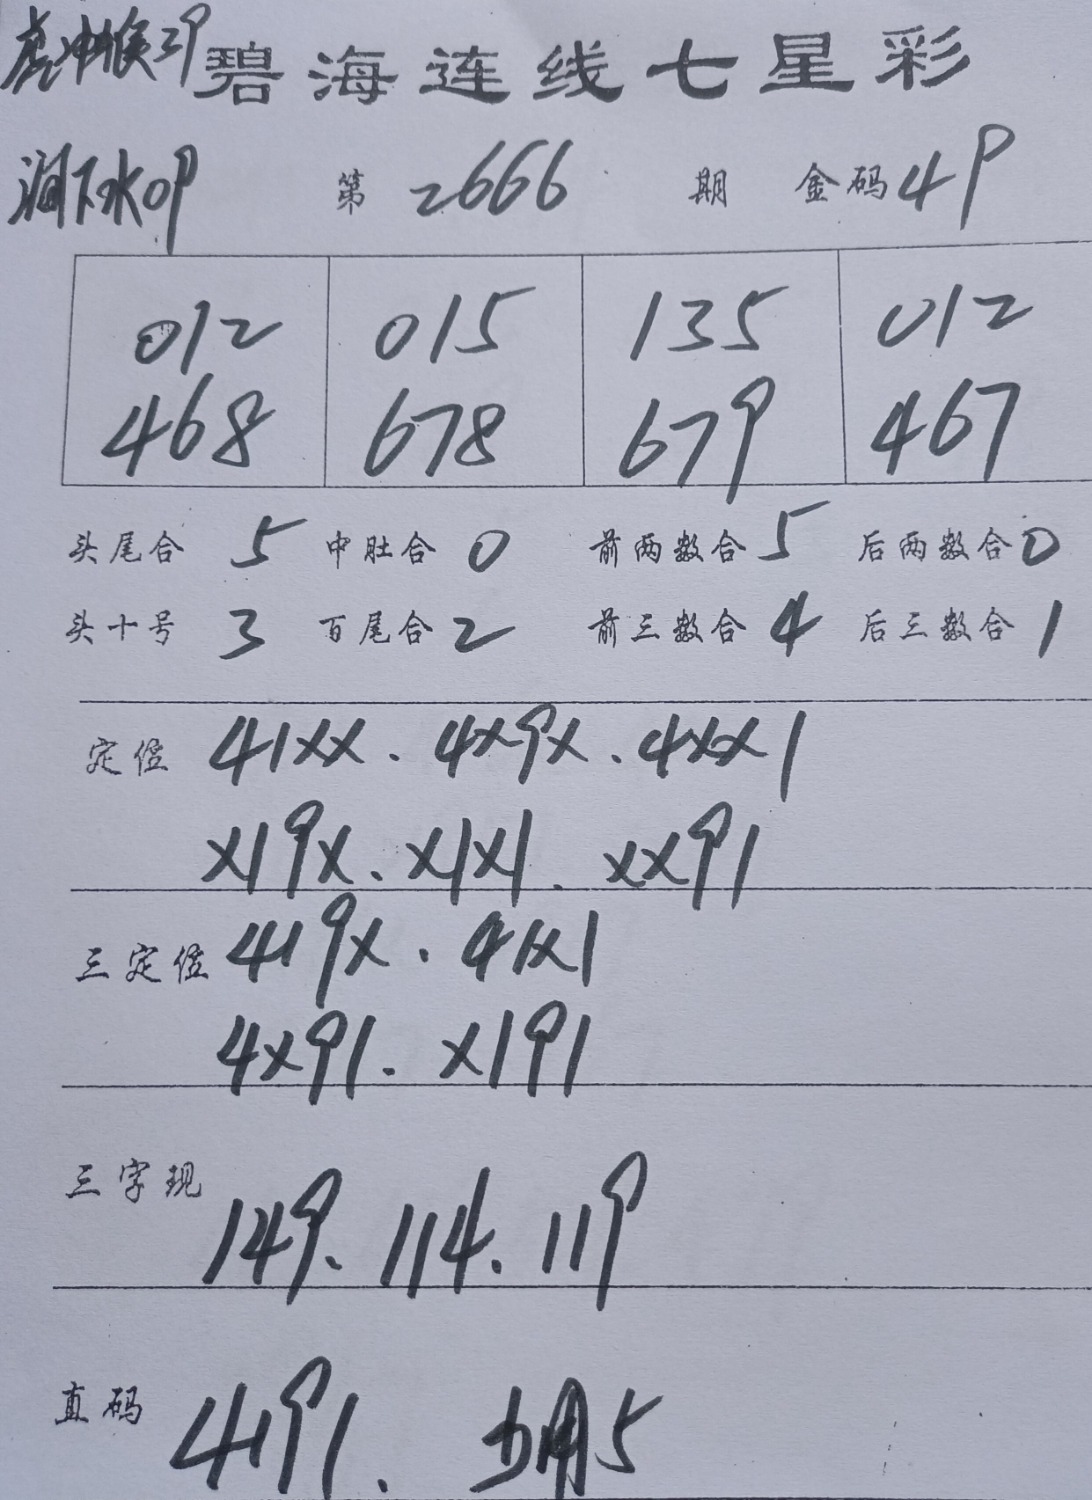 虎冲猴29 碧海连线七星彩
涧下水09 第 2666 期 金码 49
012 015 135 012
468 678 679 467
头尾合 5 中肚合 0 前两数合 5 后两数合 0
头十号 3 百尾合 2 前三数合 4 后三数合 1
定位 41XX . 4X9X . 4XX1
X19X . X1X1 . XX91
三定位 419X . 41X1
4X91 . X191
三字现
149 . 114 . 119
直码 4191 . 少用5